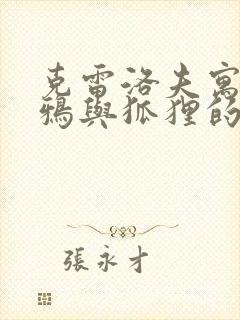 克雷洛夫寓
鴉與狐狸的
張永才